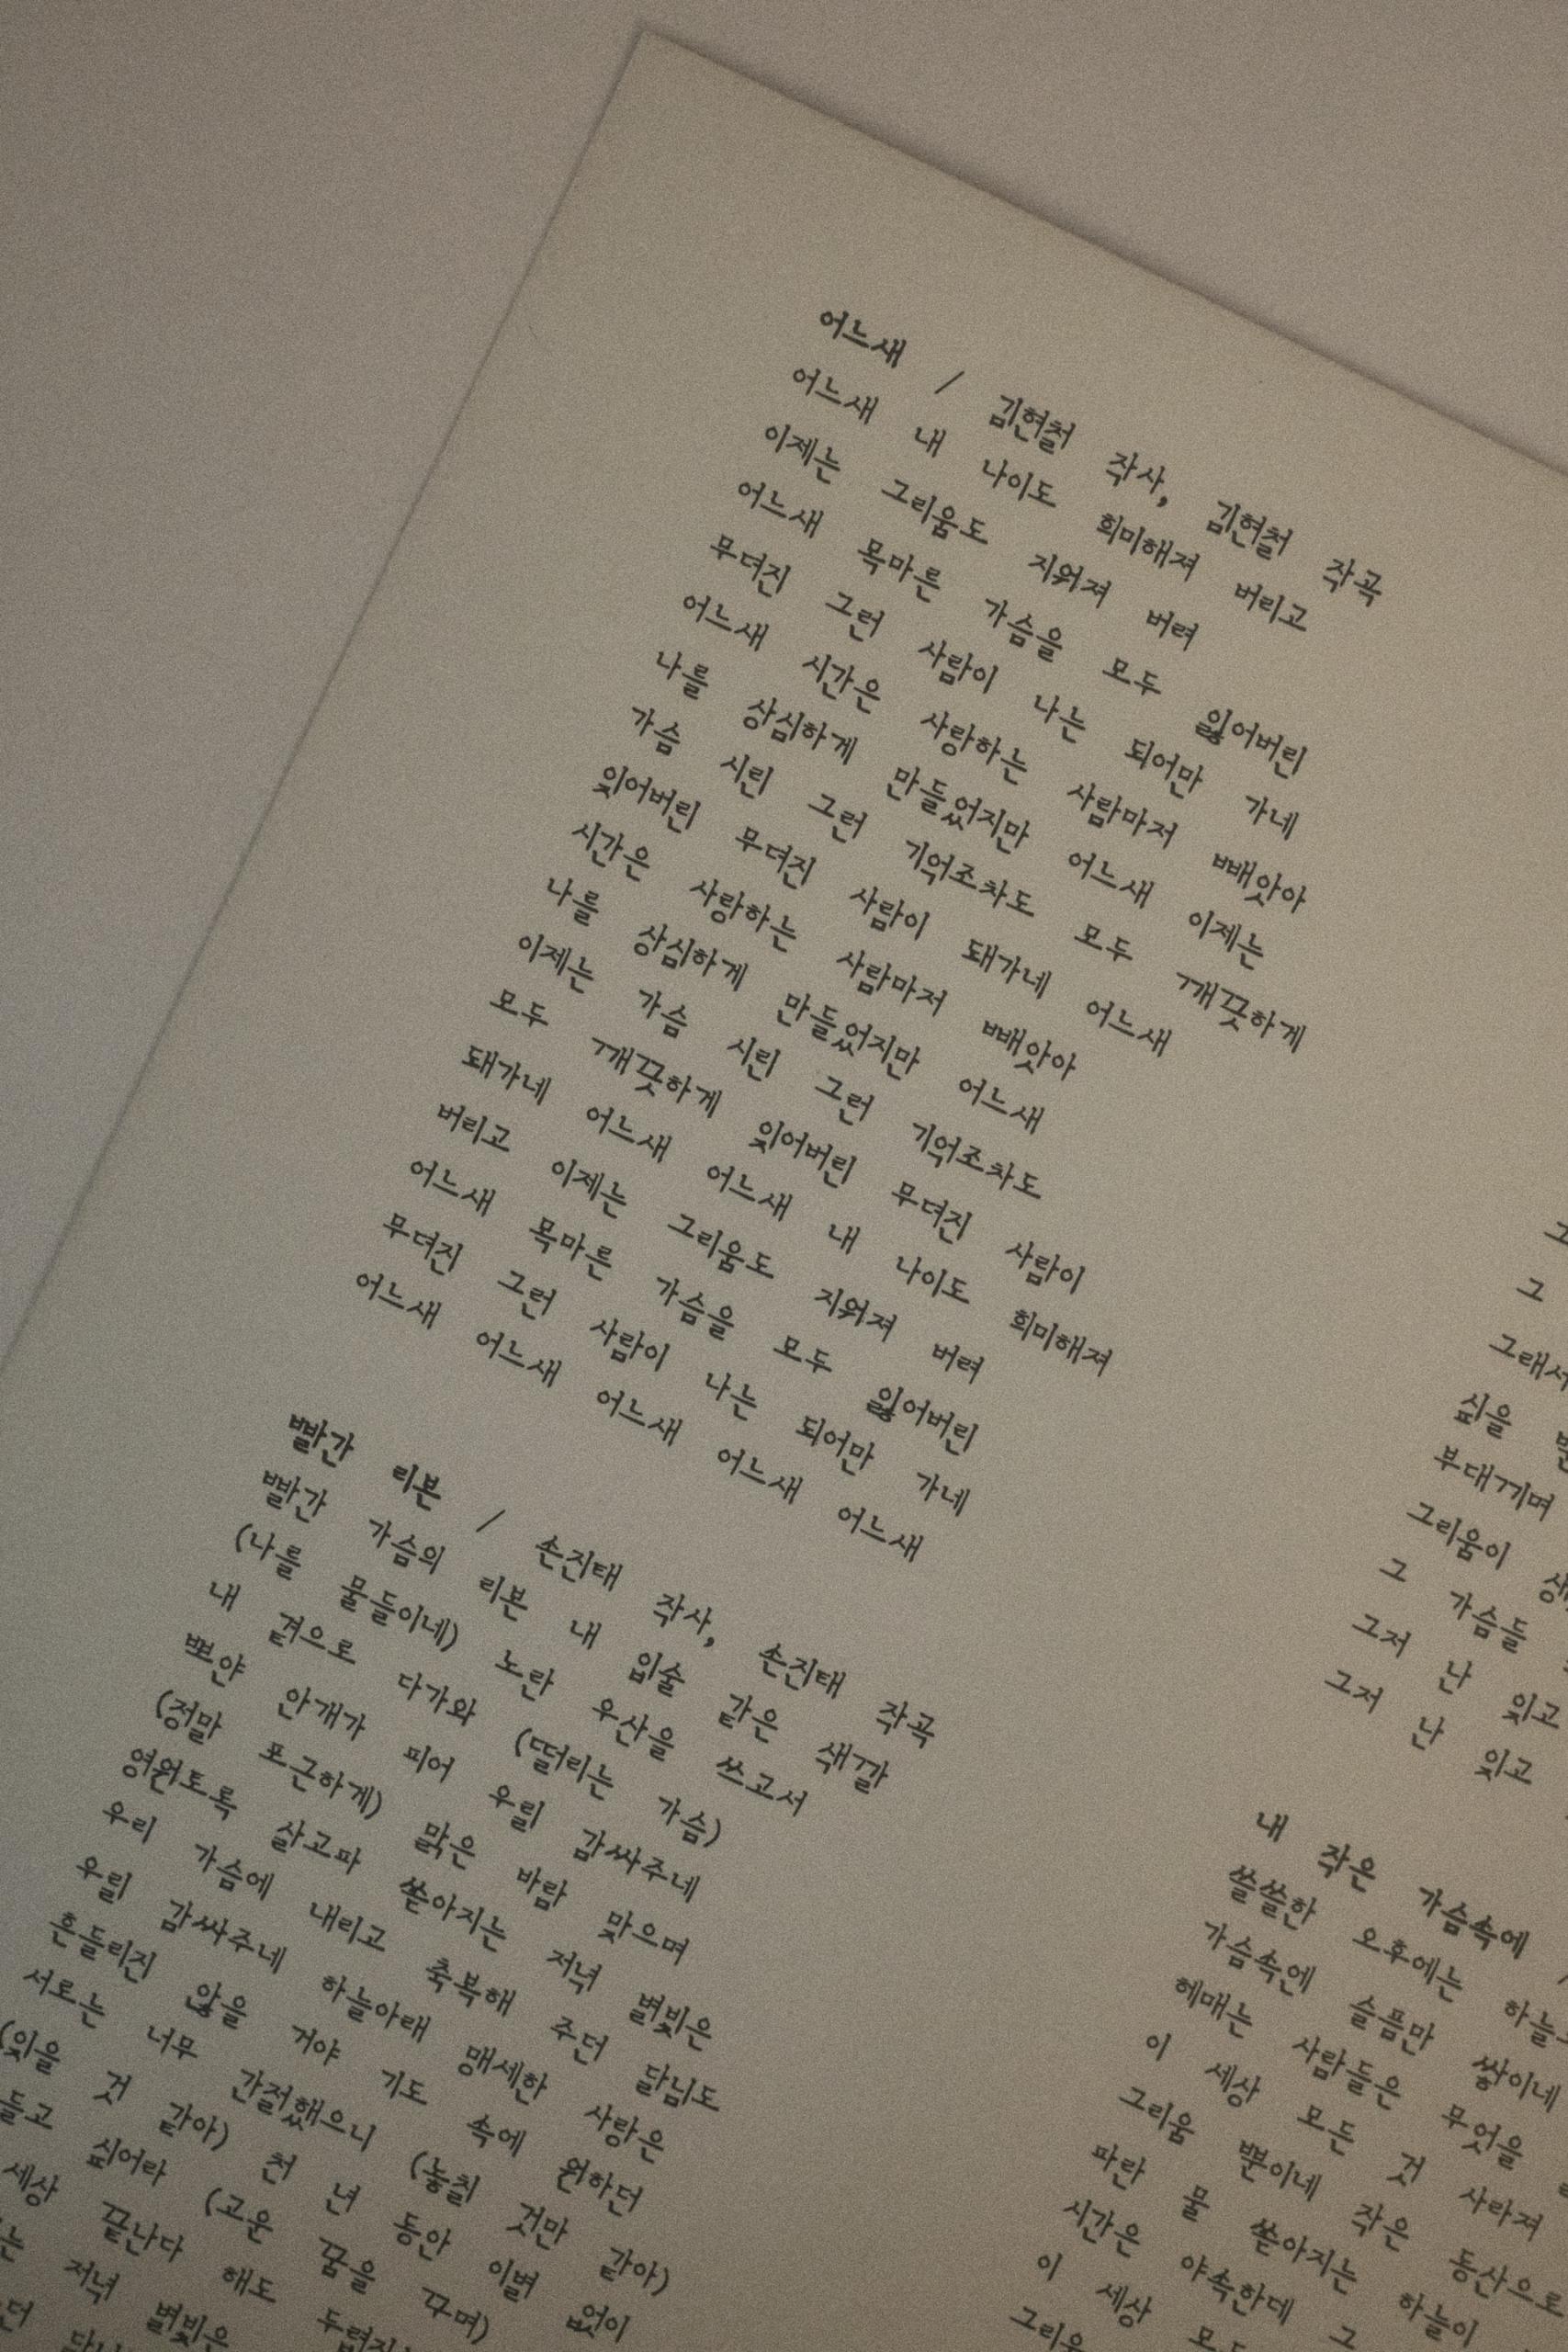 어느새 / 김현철 작사, 김현철 작곡
어느새 내 나이도 희미해져 버리고
이제는 그리움도 지워져 버려
어느새 목마른 가슴을 모두 잃어버린
무뎌진 그런 사람이 나는 되어만 가네
어느새 시간은 사랑하는 사람마저 빼앗아
나를 상심하게 만들었지만 어느새 이제는
가슴 시린 그런 기억조차도 모두 깨끗하게
잊어버린 무뎌진 사람이 돼가네 어느새
시간은 사랑하는 사람마저 빼앗아
나를 상심하게 만들었지만 어느새
이제는 가슴 시린 그런 기억조차도
모두 깨끗하게 잊어버린 무뎌진 사람이
돼가네 어느새 어느새 내 나이도 희미해져
버리고 이제는 그리움도 지워져 버려
어느새 목마른 가슴을 모두 잃어버린
무뎌진 그런 사람이 나는 되어만 가네
어느새 어느새 어느새 어느새 어느새
빨간 리본 / 손진태 작사, 손진태 작곡
빨간 가슴의 리본 내 입술 같은 색깔
(나를 물들이네) 노란 우산을 쓰고서
내 곁으로 다가와 (떨리는 가슴)
뽀얀 안개가 피어 우릴 감싸주네
(정말 포근하게) 맑은 바람 맞으며
영원토록 살고파 쏟아지는 저녁 별빛은
우리 가슴에 내리고 축복해 주던 달님도
우릴 감싸주네 하늘아래 맹세한 사랑은
흔들리진 않을 거야 기도 속에 원하던
서로는 너무 간절했으니 (놓칠 것만 같아)
(잊을 것 같아) 천 년 동안 이별 없이
들고 싶어라 (고운 꿈을 꾸며)
세상 끝난다 해도
저녁 별빛은
그
그
그래서
싶을
부대끼며
그리움이
그 가슴들
그저 난 잊고
그저 난 잊고
내 작은 가슴속에 /
쓸쓸한 오후에는
가슴속엔 슬픔만 쌓이네
헤매는 사람들은 무엇을
이 세상 모든 것 사라져
그리움 뿐이네 작은 동산으로
파란 물 쏟아지는 하늘이
시간은 야속한데 그
이 세상